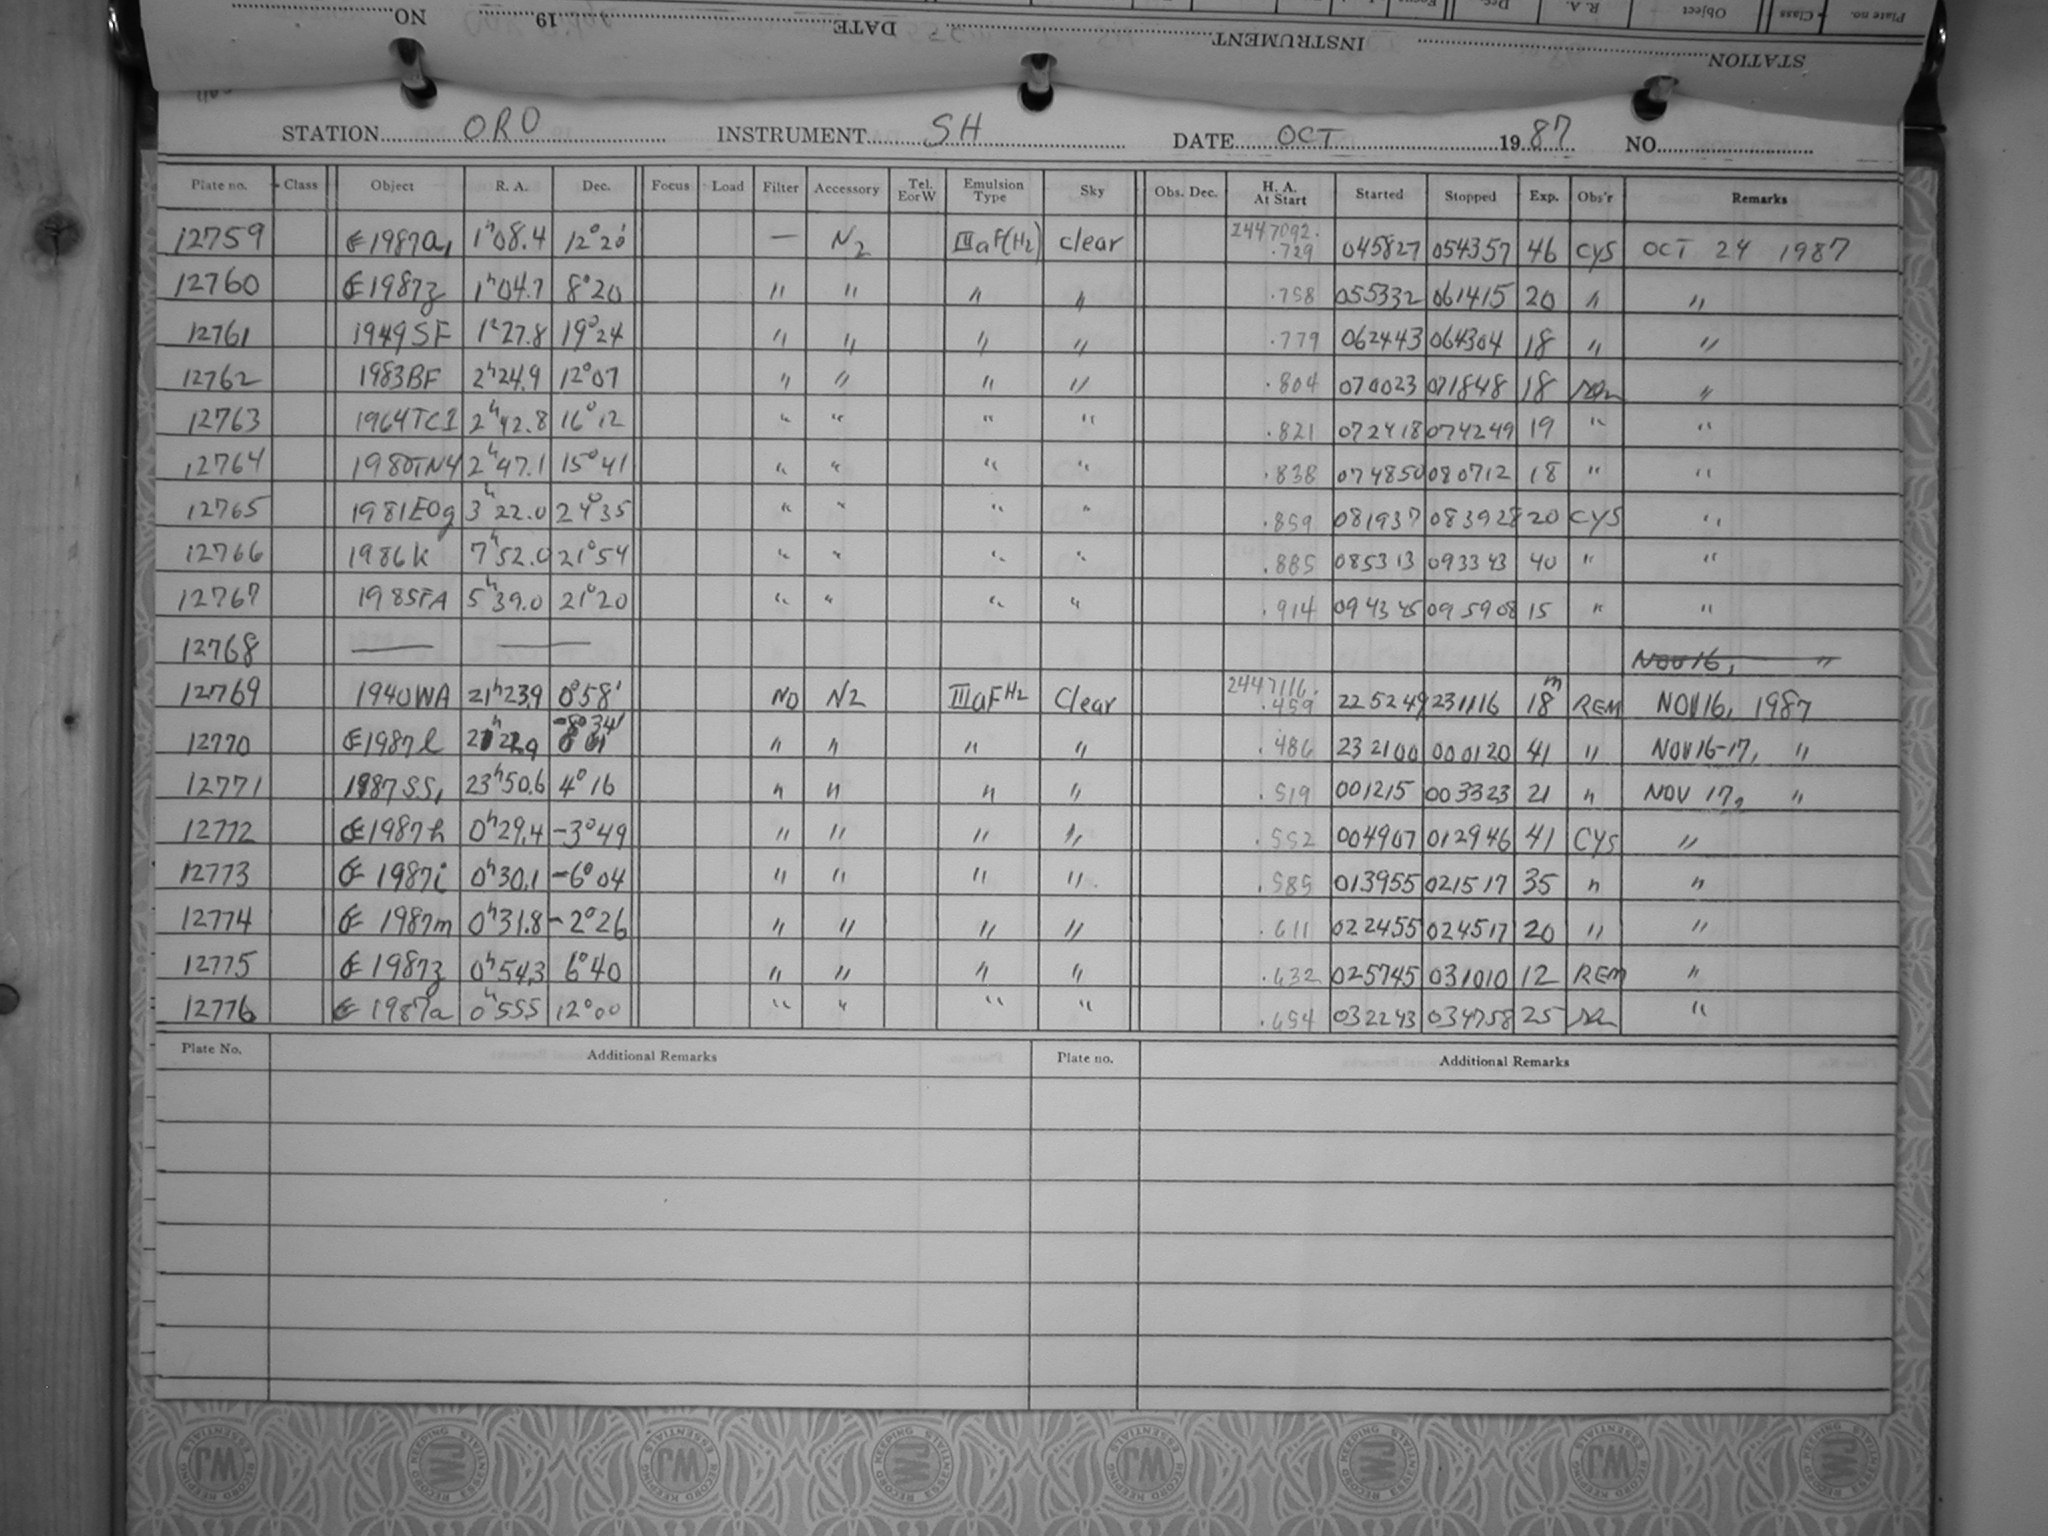 Plate no. Class Object R. A. Dec.
STATION INSTRUMENT DATE 19 NO
STATION ORO INSTRUMENT SH DATE OCT 1987 NO
Plate no. Class Object R. A. Dec. Focus Load Filter Accessory Tel. E or W Emulsion Type Sky Obs. Dec. H. A. At Start Started Stopped Exp. Obs'r Remarks
12759 1987a1 1h08.4 12°20' — N2 IIIaF(H2) clear 2447092. .729 045827 054357 46 CYS OCT 24 1987
12760 1987z 1h04.7 8°20 " " " " .758 055332 061415 20 " "
12761 1949SF 1h27.8 19°24 " " " " .779 062443 064304 18 " "
12762 1983BF 2h24.9 12°07 " " " " .804 070023 071848 18 "
12763 1964TC1 2h42.8 16°12 " " " " .821 072418 074249 19 " "
12764 1980TN4 2h47.1 15°41 " " " " .838 074850 080712 18 " "
12765 1981EOg 3h22.0 24°35 " " " " .859 081937 083928 20 CYS "
12766 1986k 7h52.0 21°54 " " " " .885 085313 093343 40 " "
12767 1985FA 5h39.0 21°20 " " " " .914 094345 095908 15 " "
12768 — — NOV 16, "
12769 1940WA 21h23.9 0°58' NO N2 IIIaFH2 Clear 2447116. .459 225249 231116 18m REM NOV 16, 1987
12770 1987l -8°34' " " " " .486 232100 000120 41 " NOV 16-17, "
12771 1987SS1 23h50.6 4°16 " " " " .519 001215 003323 21 " NOV 17, "
12772 1987h 0h29.4 -3°49 " " " " .552 004907 012946 41 CYS "
12773 1987i 0h30.1 -6°04 " " " " .585 013955 021517 35 " "
12774 1987m 0h31.8 -2°26 " " " " .611 022455 024517 20 " "
12775 1987z 0h54.3 6°40 " " " " .632 025745 031010 12 REM "
12776 1987a 0h55.5 12°00 " " " " .654 032243 034758 25 "
Plate No. Additional Remarks Plate no. Additional Remarks
RECORD KEEPING ESSENTIALS WJ